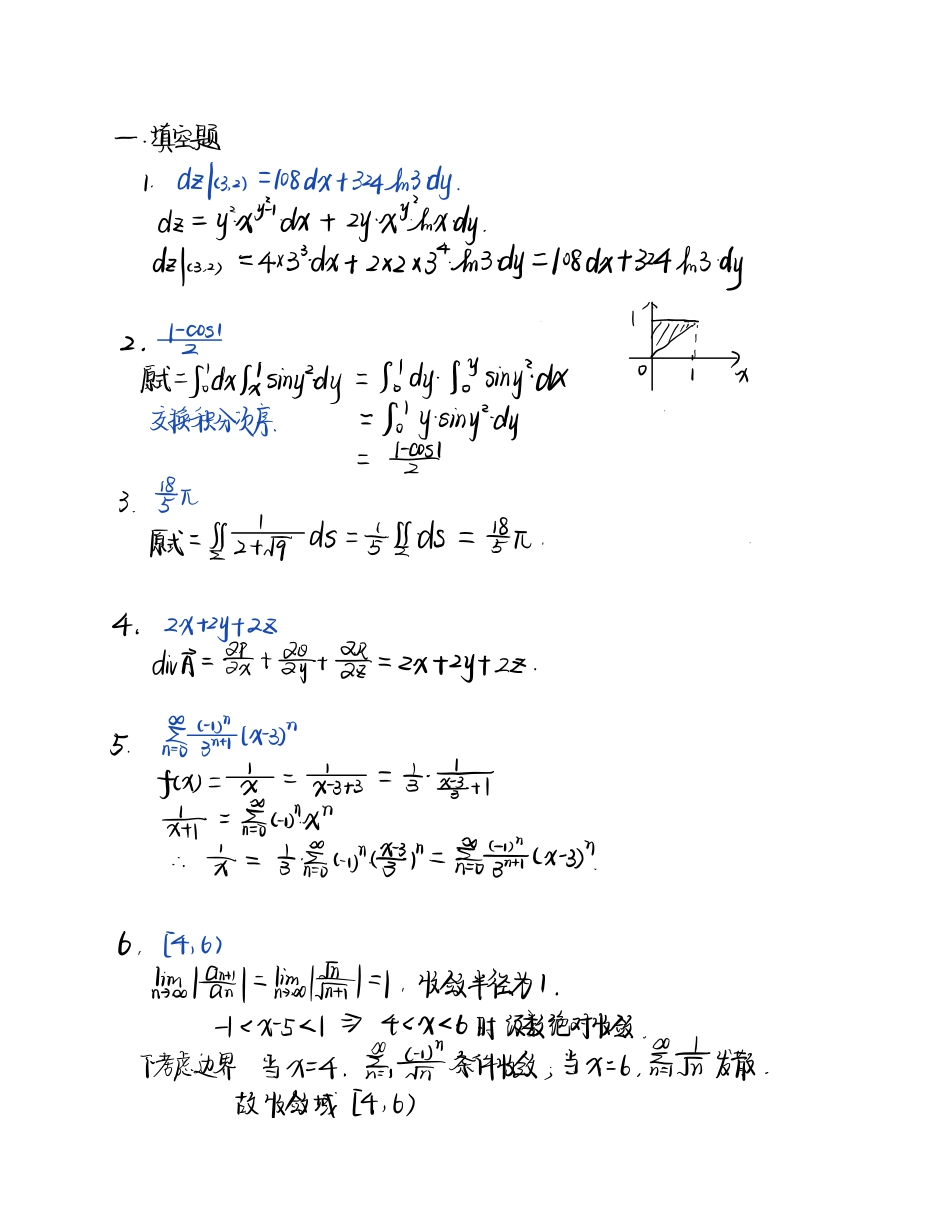 一.填空题
1. dz|(3,2) =108dx+324ln3dy.
dz = y²·x^{y²-1}·dx + 2y·x^{y²}·lnx dy.
dz|(3,2) = 4×3³·dx + 2×2×3⁴·ln3·dy = 108dx+324 ln3·dy
2. \frac{1-cos1}{2}
原式=∫₀¹dx∫ₓ¹siny²dy = ∫₀¹dy·∫₀^y siny²·dx
交换积分次序. = ∫₀¹ y·siny²·dy
= \frac{1-cos1}{2}
1
0 1 x
3. \frac{18}{5}π
原式=∬_Σ \frac{1}{2+√9} ds = \frac{1}{5}∬_Σ ds = \frac{18}{5}π.
4. 2x+2y+2z
div\vec{A} = \frac{∂P}{∂x} + \frac{∂Q}{∂y} + \frac{∂R}{∂z} = 2x+2y+2z.
5. \sum_{n=0}^{∞} \frac{(-1)^n}{3^{n+1}} (x-3)^n
f(x) = \frac{1}{x} = \frac{1}{x-3+3} = \frac{1}{3}·\frac{1}{\frac{x-3}{3}+1}
\frac{1}{x+1} = \sum_{n=0}^{∞} (-1)^n·x^n
∴ \frac{1}{x} = \frac{1}{3}·\sum_{n=0}^{∞} (-1)^n·(\frac{x-3}{3})^n = \sum_{n=0}^{∞} \frac{(-1)^n}{3^{n+1}} (x-3)^n.
6. [4,6)
\lim_{n→∞} |\frac{a_{n+1}}{a_n}| = \lim_{n→∞} |\frac{√n}{√{n+1}}| =1, 收敛半径为1.
-1<x-5<1 ⇒ 4<x<6 时 级数绝对收敛.
下考虑边界 当x=4, \sum_{n=1}^{∞} \frac{(-1)^n}{√n} 条件收敛; 当x=6, \sum_{n=1}^{∞} \frac{1}{√n} 发散.
故收敛域 [4,6)